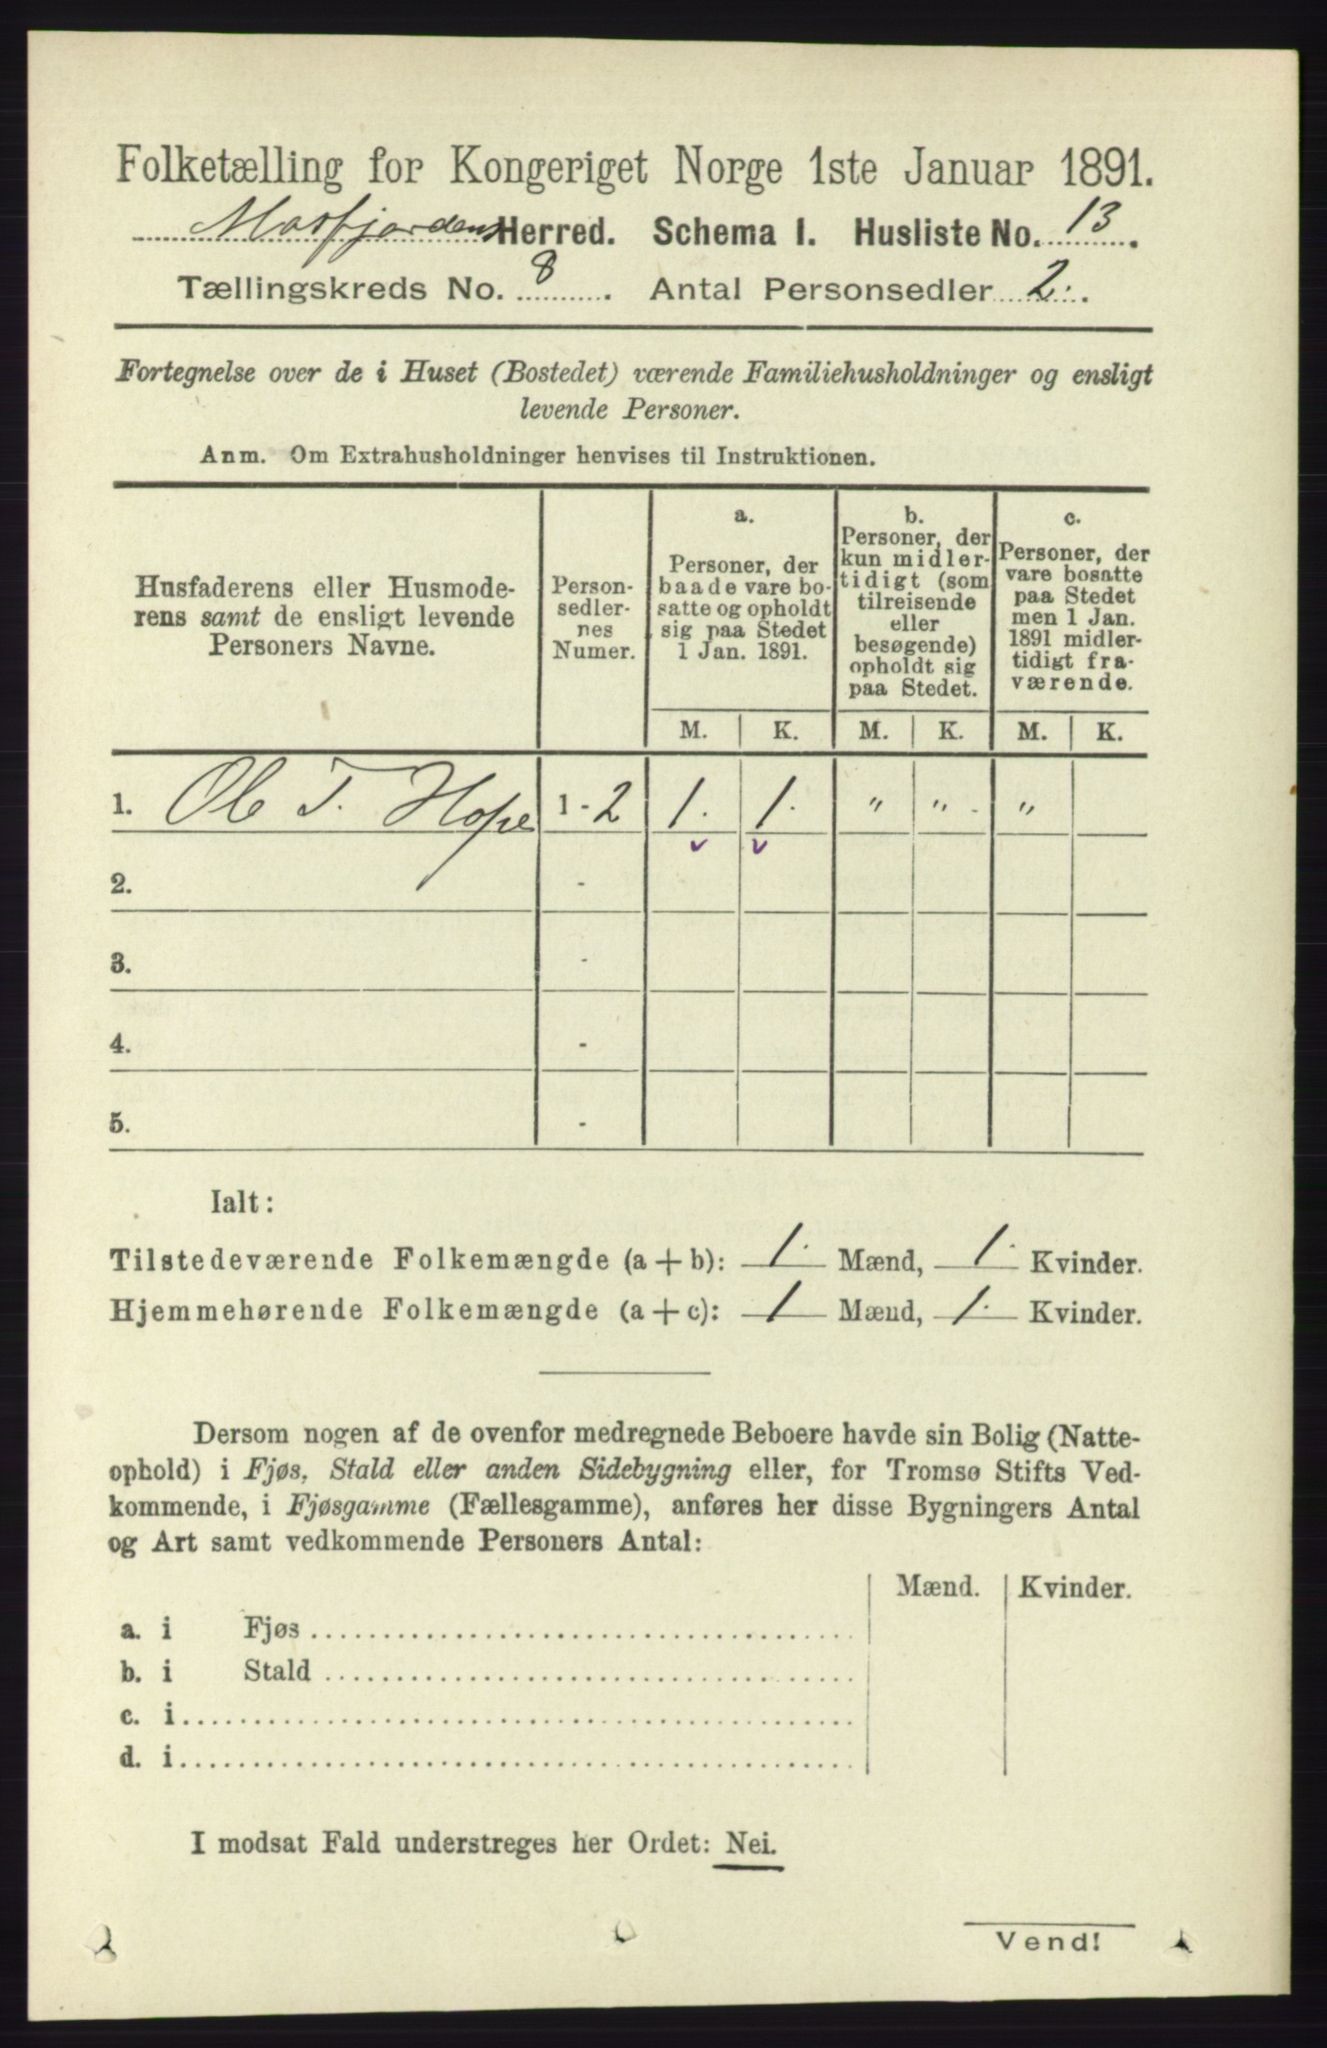 Folketælling for Kongeriget Norge 1ste Januar 1891.
Masfjordens Herred. Schema I. Husliste No. 13.
Tællingskreds No. 8. Antal Personsedler 2.
Fortegnelse over de i Huset (Bostedet) værende Familiehusholdninger og ensligt
levende Personer.
Anm. Om Extrahusholdninger henvises til Instruktionen.
Husfaderens eller Husmode-
rens samt de ensligt levende
Personers Navne.
Person-
sedler-
nes
Numer.
a.
Personer, der
baade vare bo-
satte og opholdt
sig paa Stedet
1 Jan. 1891.
b.
Personer, der
kun midler-
tidigt (som
tilreisende
eller
besøgende)
opholdt sig
paa Stedet.
c.
Personer, der
vare bosatte
paa Stedet
men 1 Jan.
1891 midler-
tidigt fra-
værende.
M. K. M. K. M. K.
1. Ole T. Hope 1 - 2 1. 1. " " . "
2. -
3. -
4. -
5. -
Ialt:
Tilstedeværende Folkemængde (a + b): 1. Mænd, 1. Kvinder.
Hjemmehørende Folkemængde (a + c): 1 Mænd, 1. Kvinder.
Dersom nogen af de ovenfor medregnede Beboere havde sin Bolig (Natte-
ophold) i Fjøs, Stald eller anden Sidebygning eller, for Tromsø Stifts Ved-
kommende, i Fjøsgamme (Fællesgamme), anføres her disse Bygningers Antal
og Art samt vedkommende Personers Antal:
Mænd. Kvinder.
a. i Fjøs
b. i Stald
c. i
d. i
I modsat Fald understreges her Ordet: Nei.
Vend!